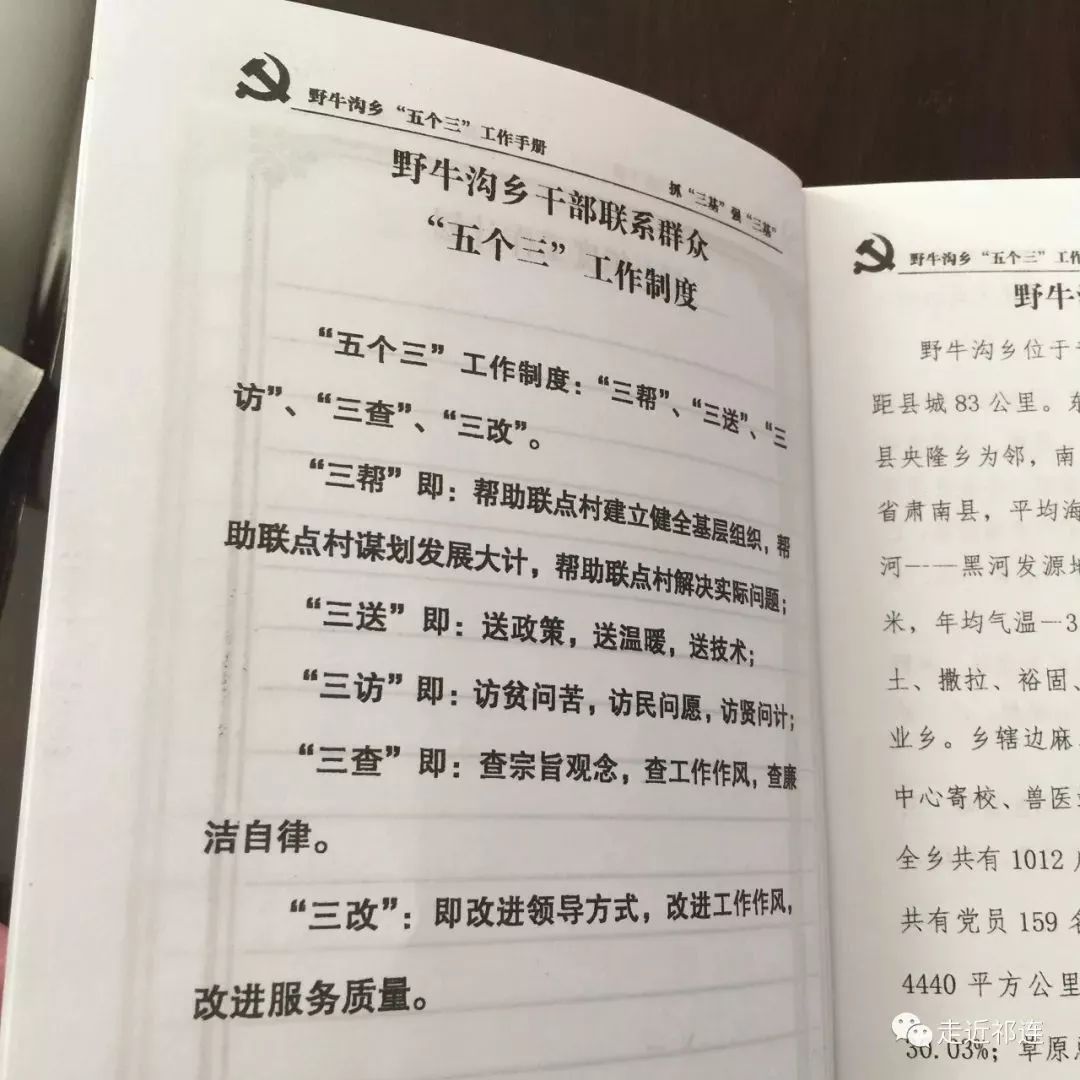 野牛沟乡“五个三”工作手册
抓“三基”强“三基”
野牛沟乡干部联系群众
“五个三”工作制度
“五个三”工作制度：“三帮”、“三送”、“三
访”、“三查”、“三改”。
“三帮”即：帮助联点村建立健全基层组织，帮
助联点村谋划发展大计，帮助联点村解决实际问题；
“三送”即：送政策，送温暖，送技术；
“三访”即：访贫问苦，访民问愿，访贤问计；
“三查”即：查宗旨观念，查工作作风，查廉
洁自律。
“三改”：即改进领导方式，改进工作作风，
改进服务质量。
野牛沟乡“五个三”工
野牛
野牛沟乡位于
距县城83公里。东
县央隆乡为邻，南
省肃南县，平均海
河——黑河发源地
米，年均气温－3
土、撒拉、裕固、
业乡。乡辖边麻
中心寄校、兽医
全乡共有1012
共有党员159名
4440平方公里
30.03%；草原总
走近祁连